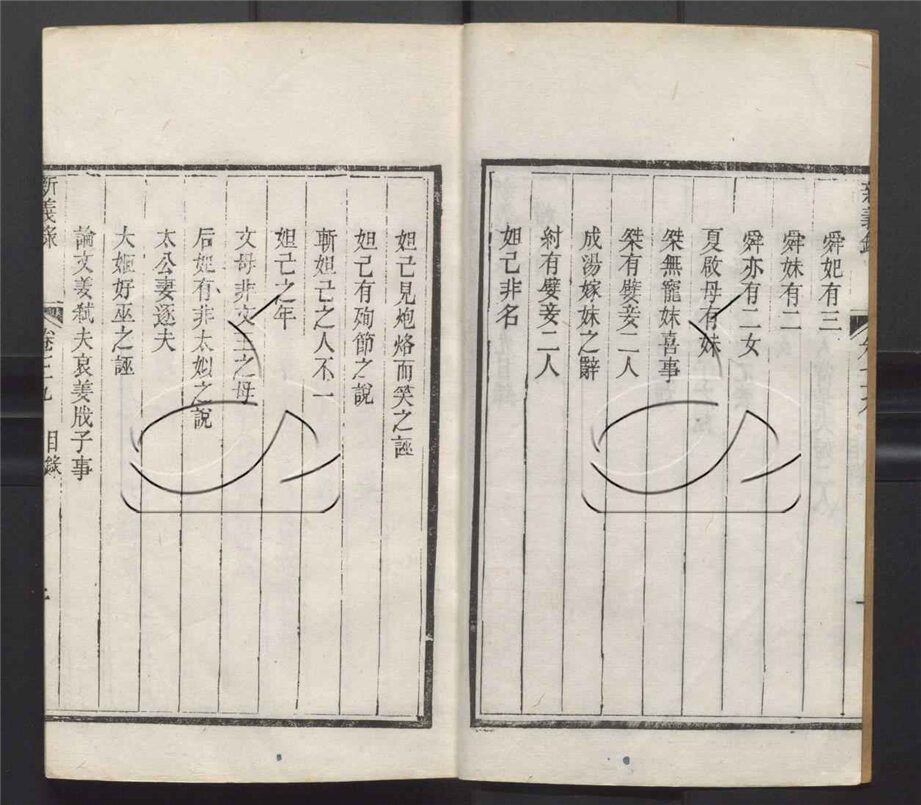 舜妃有三
舜妹有二
舜亦有二女
夏啟母有妹
桀無寵妹喜事
桀有嬖妾二人
成湯嫁妹之辭
紂有嬖妾二人
妲己非名
妲己見炮烙而笑之誣
妲己有殉節之說
斬妲己之人不一
妲己之年
文母非文王之母
后妃有非太姒之說
太公妻逐夫
大姬好巫之誣
論文姜弒夫哀姜戕子事
新義錄
目錄